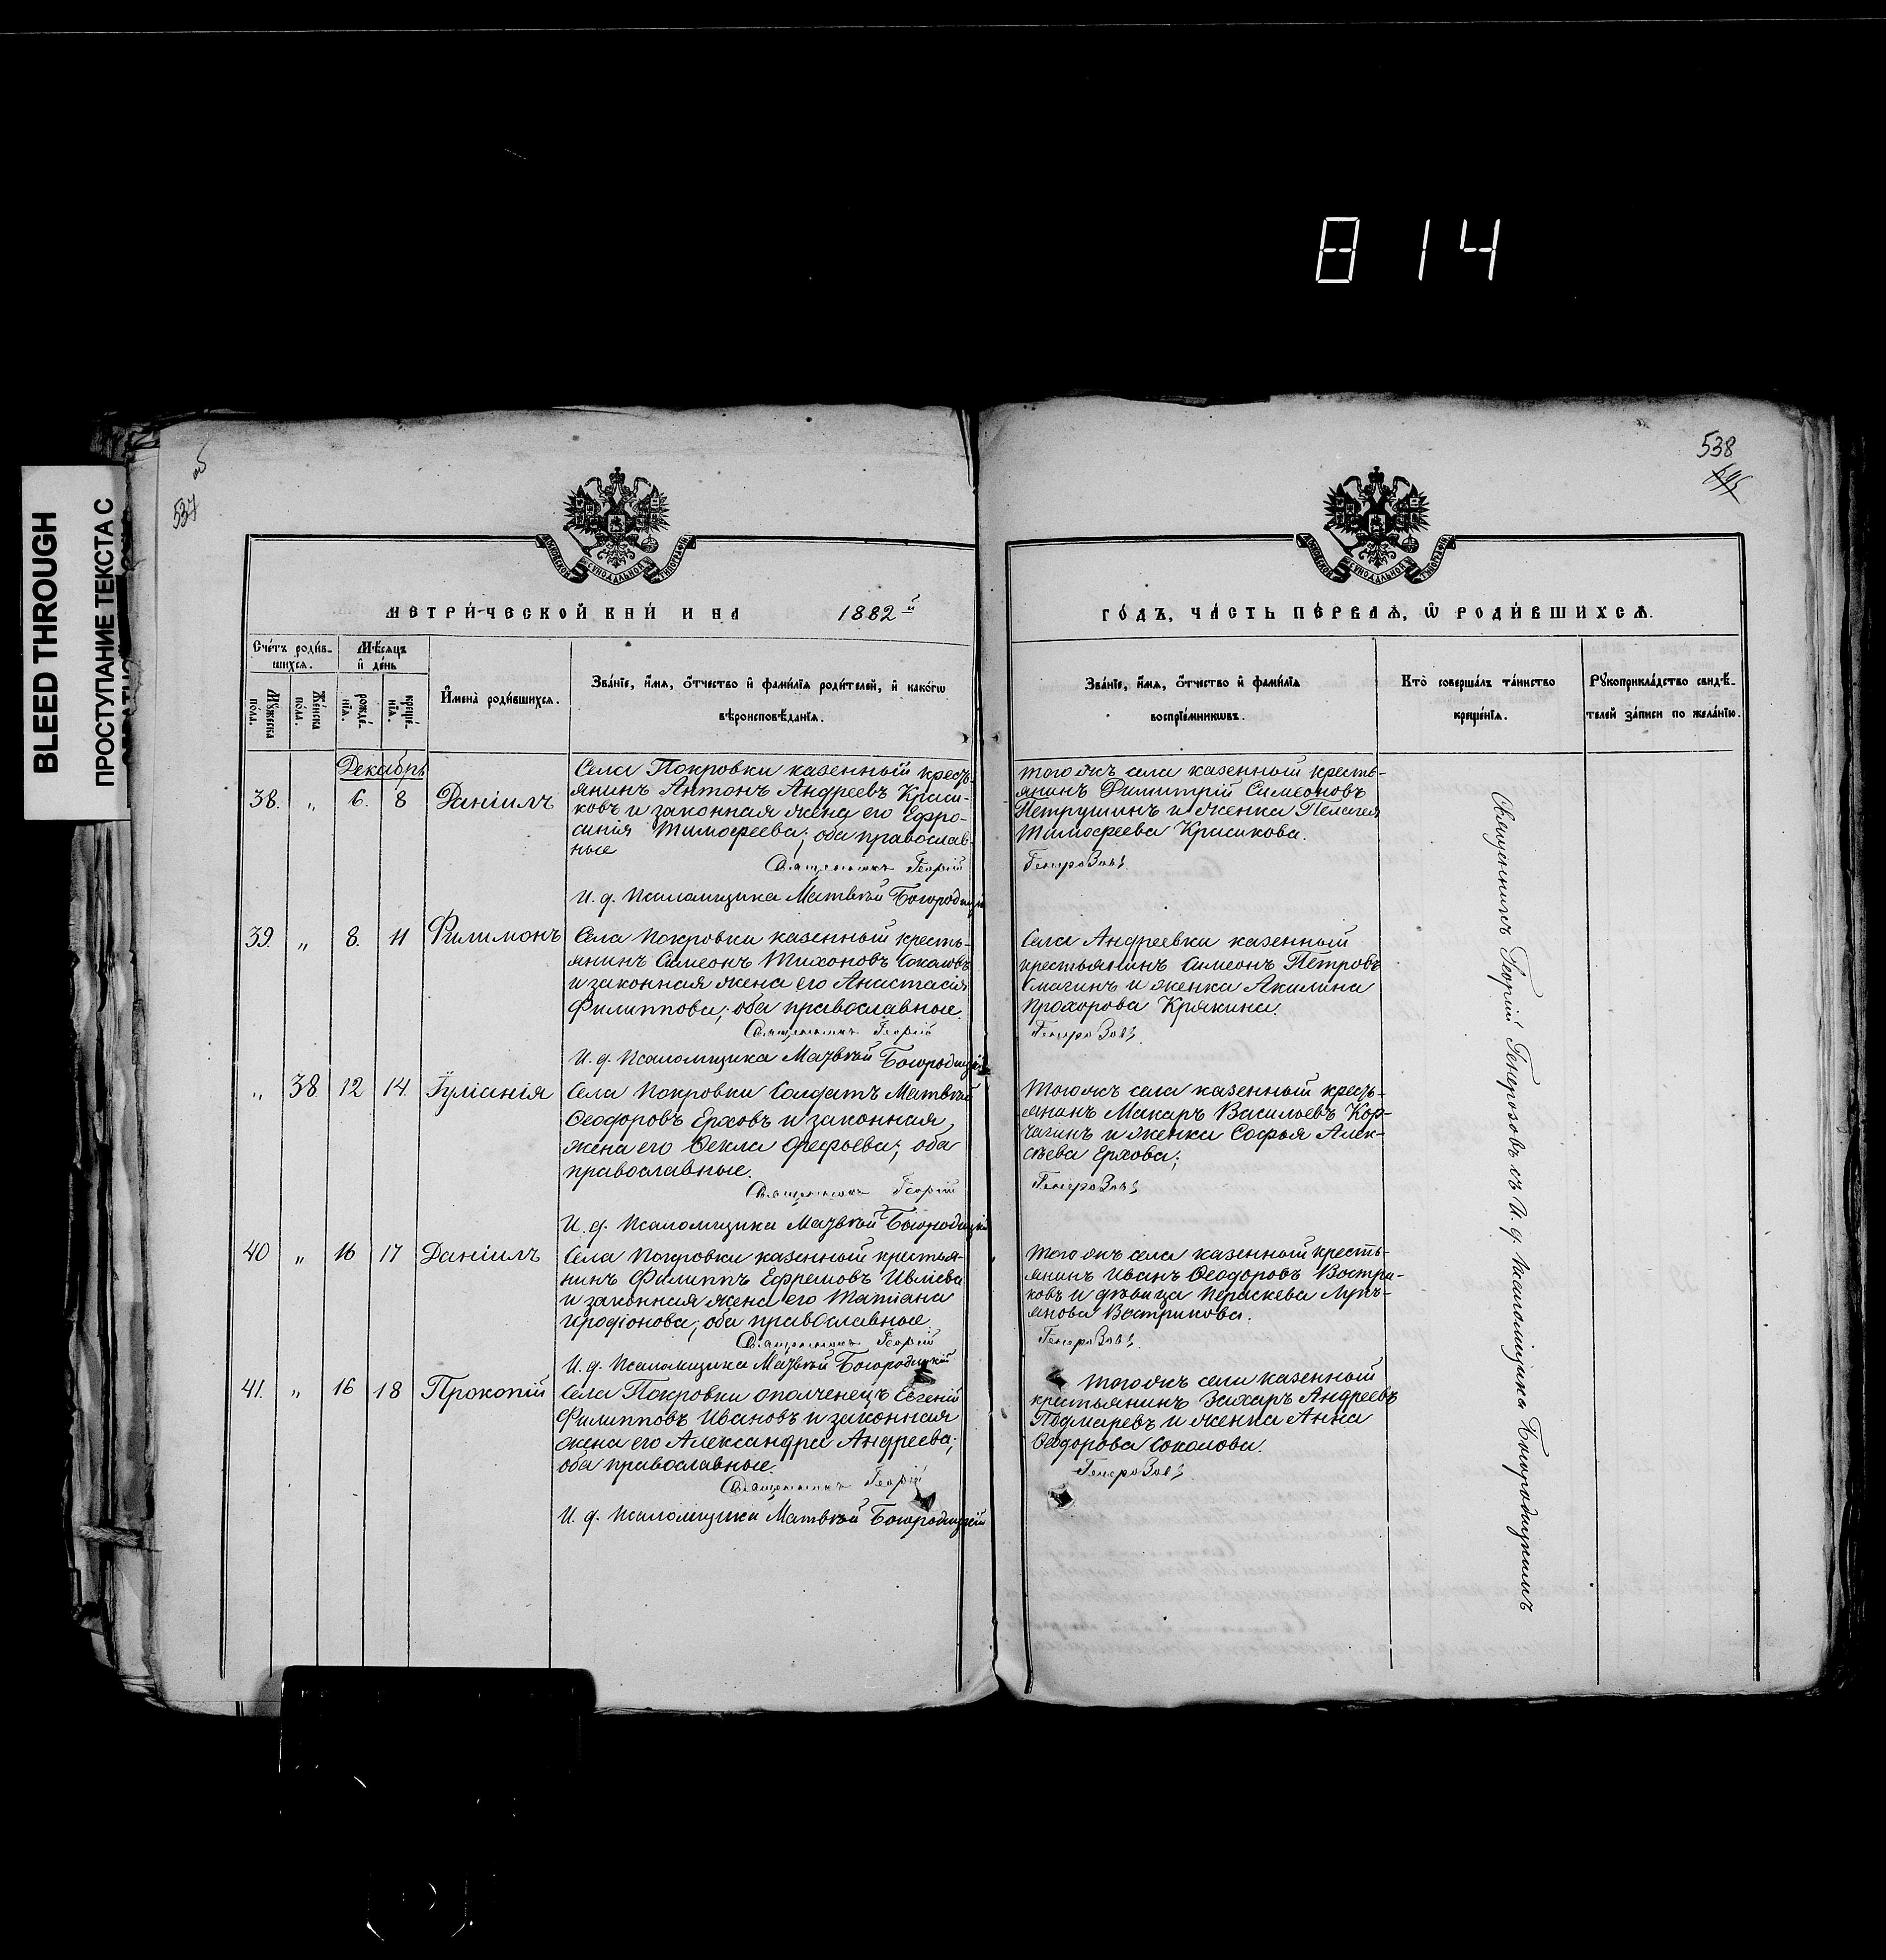 814
BLEED THROUGH
ПРОСТУПАНИЕ ТЕКСТА С
537
об
538
МЕТРИ́ЧЕСКОЙ КНИ́ И НА 1882й
ГО́ДЪ, ЧА́СТЬ ПЕ́РВАЯ, Ѡ РОДИ́ВШИХСЯ.
Сче́тъ роди́в-
шихся.
Мѣ́сяцъ
и де́нь
Мꙋ́жеска
по́ла.
Же́нска
по́ла.
рожде́-
нїя.
креще́-
нїя.
И҆мена̀ роди́вшихся.
Зва́нїе, и҆́мя, ѻ҆́тчество и҆ фами́лїя роди́телей, и҆ како́гѡ
вѣроисповѣ́данїя.
Зва́нїе, и҆́мя, ѻ҆́тчество и҆ фами́лїя
воспрїе́мникѡвъ.
Кто̀ соверша́лъ та́инство
креще́нїя.
Рꙋкоприкла́дство свидѣ́-
телей за́писи по жела́нїю.
Декабрь
38. " 6. 8 Данiилъ
Села Покровки казенный кресть-
янинъ Антонъ Андреевъ Краси-
ковъ и законная жена его Ефро-
синiя Тимоѳеева; оба православ-
ные
Священникъ Георгiй
И. д. Псаломщика Матвѣй Богородицкiй
того жъ села казенный кресть-
янинъ Димитрiй Симеоновъ
Петрушинъ и женка Пелагея
Тимоѳеева Красикова.
Генерозовъ
39. " 8. 11 Филимонъ
Села Покровки казенный кресть-
янинъ Симеонъ Тихоновъ Соколовъ
и законная жена его Анастасiя
Филиппова; оба православные.
Священникъ Георгiй
И. д. Псаломщика Матвѣй Богородицкiй
Села Андреевки казенный
крестьянинъ Симеонъ Петровъ
Смагинъ и женка Акилина
Прохорова Крякина.
Генерозовъ
" 38 12 14. Iулiанiя
Села Покровки Солдатъ Матвѣй
Ѳеодоровъ Ерховъ и законная
жена его Ѳекла; оба
православные.
Священникъ Георгiй
И. д. Псаломщика Матвѣй Богородицкiй
Того жъ села казенный кресть-
янинъ Макаръ Васильевъ Кор-
чагинъ и женка Софья Алек-
сѣева Ерхова;
Генерозовъ
40 " 16 17 Данiилъ
Села Покровки казенный крестья-
нинъ Филиппъ Ефремовъ Ивлiева
и законная жена его Татiана
Иродiонова; оба православные
Священникъ Георгiй
И. д. Псаломщика Матвѣй Богородицкiй
Того жъ села казенный кресть-
янинъ Иванъ Ѳеодоровъ Востри-
ковъ и дѣвица Параскева Лукь-
янова Вострикова.
Генерозовъ
41. " 16 18 Прокопiй
Села Покровки ополченецъ Евгенiй
Филипповъ Ивановъ и законная
жена его Александра Андреева;
оба православные.
Священникъ Георгiй
И. д. Псаломщика Матвѣй Богородицкiй
Того жъ села казенный
крестьянинъ Захаръ Андреевъ
и женка Анна
Ѳеодорова Соколова.
Генерозовъ
Священникъ Георгiй Генерозовъ съ И. д. Псаломщика Богородицкимъ